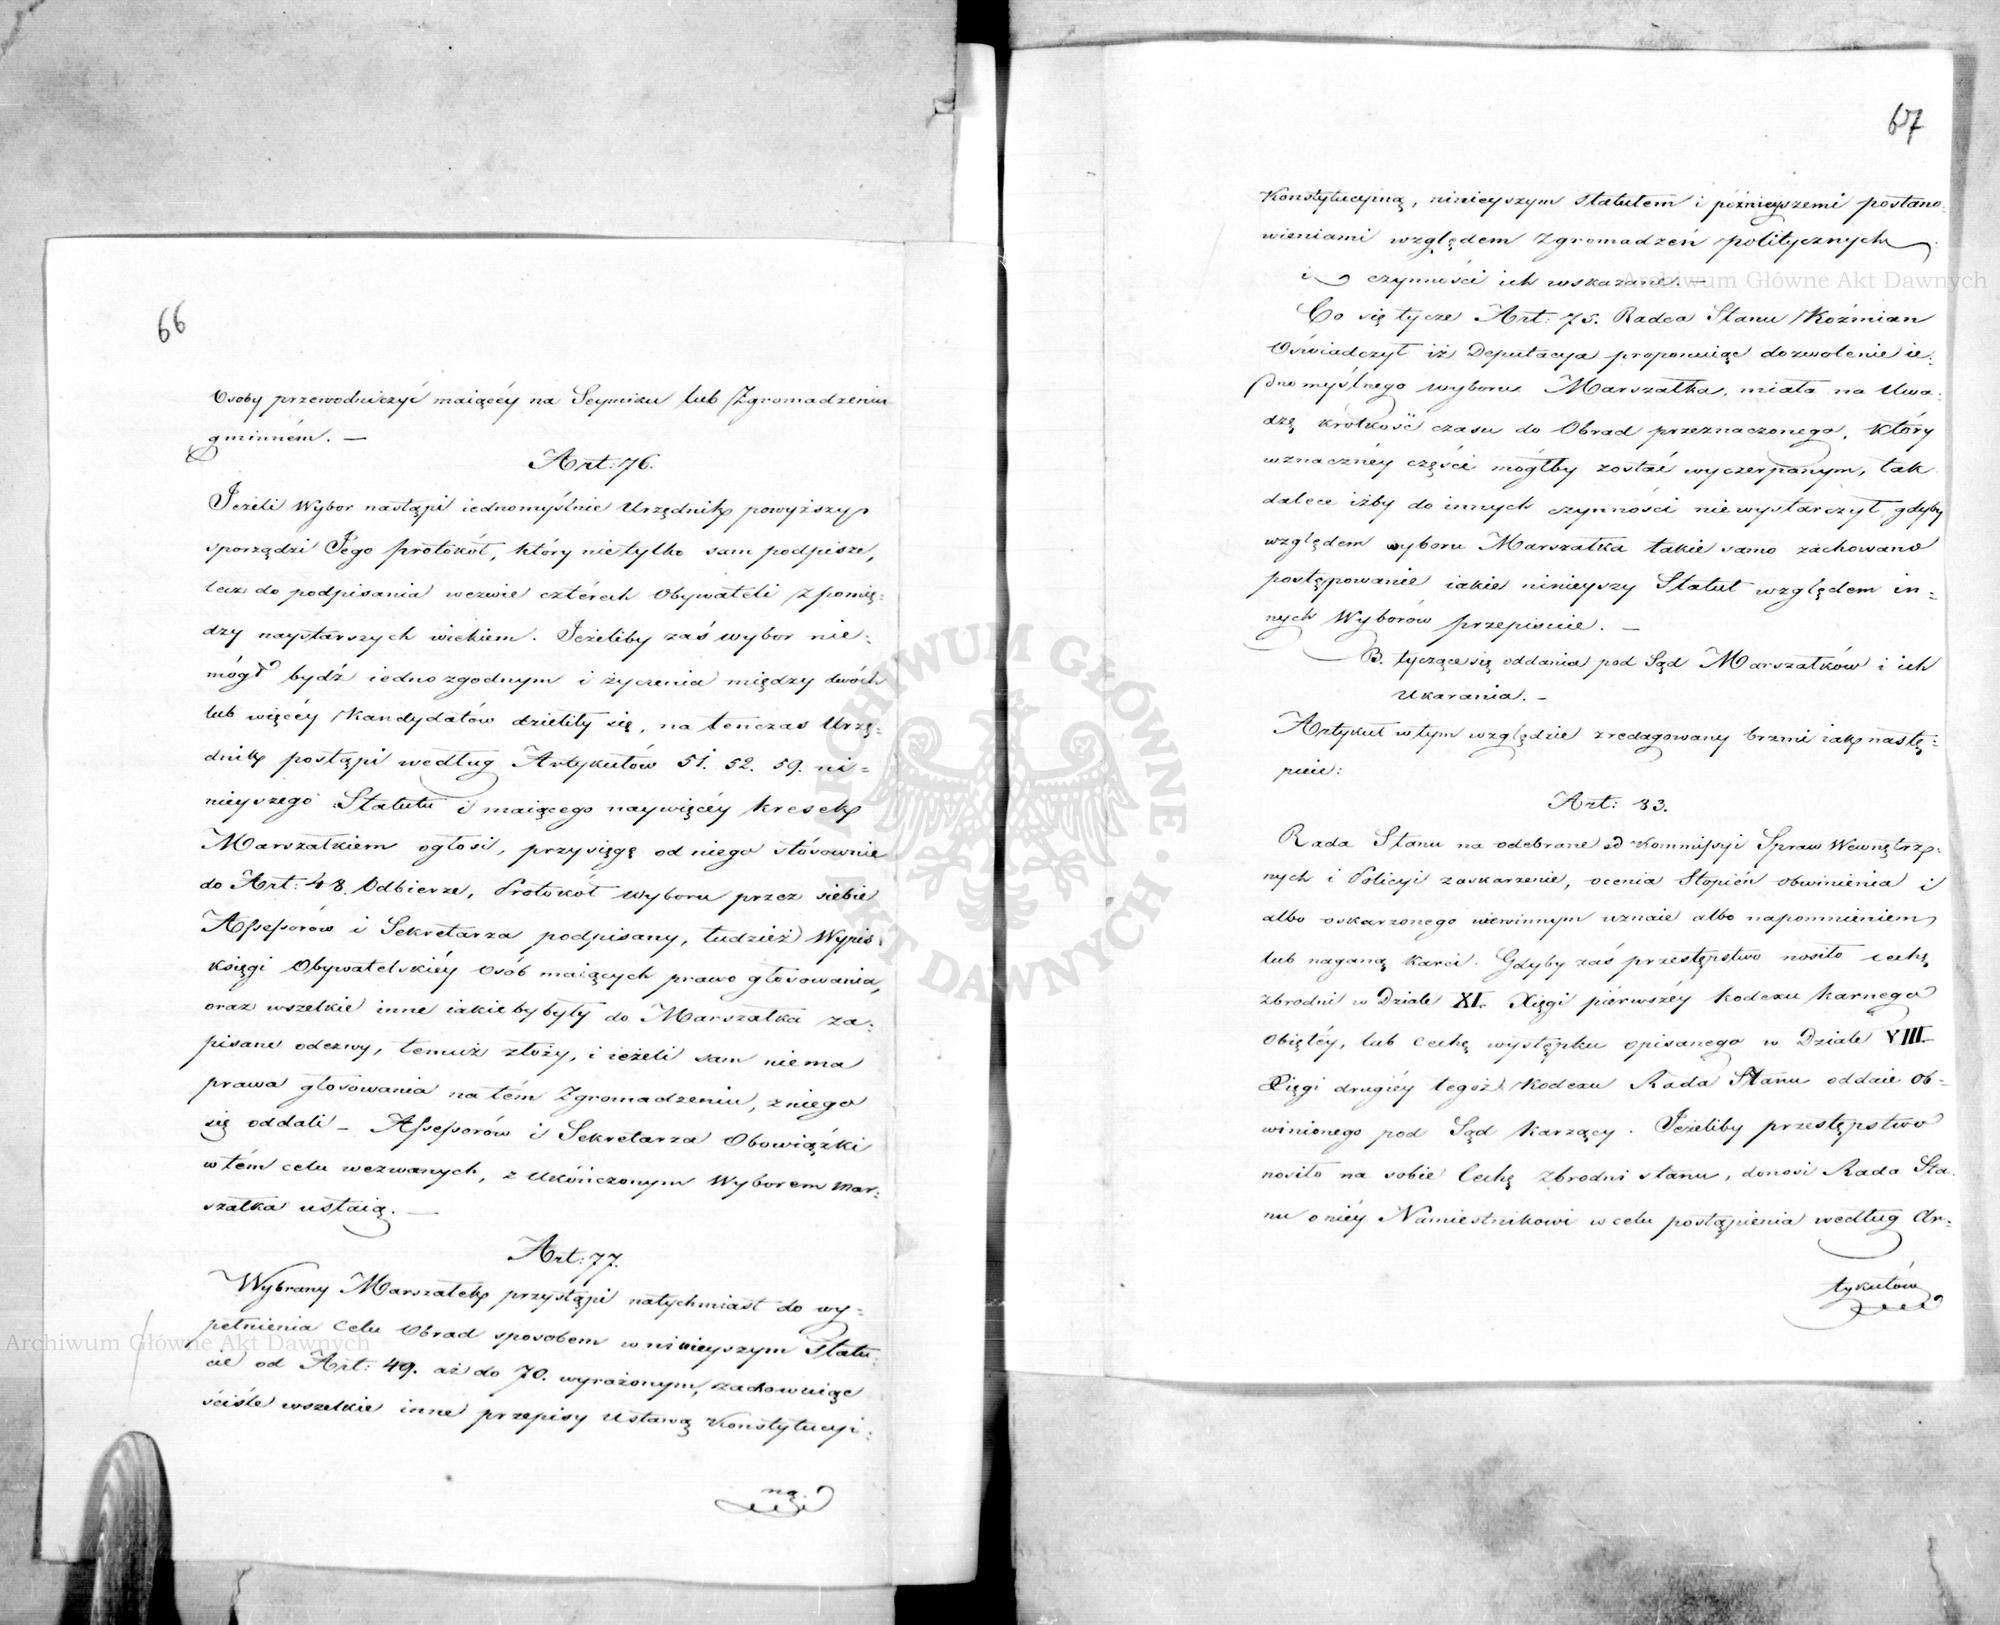 66
Osoby przewodniczyć maiącéy na Seymiku lub Zgromadzeniu
gminném. —
Art: 76.
Jeżeli Wybor nastąpi iednomyślnie Urzędnik powyższy
sporządzi Jego protokół, który nietylko sam podpisze,
lecz do podpisania wezwie czterech Obywateli z pomię:
dzy naystarszych wiekiem. Jeżeliby zaś wybor nie:
mógł bydź iednozgodnym i życzenia między dwóch
lub więcéy Kandydatów dzieliły się, na tenczas Urzę:
dnik postąpi według Artykułów 51. 52. 59. ni=
nieyszego Statutu i maiącego naywięcéy kresek
Marszałkiem ogłosi, przysięgę od niego stósownie
do Art: 48. Odbierze, Protokół Wyboru przez siebie
Assessorów i Sekretarza podpisany, tudzież Wypis
księgi Obywatelskiéy Osób maiących prawo głosowania,
oraz wszelkie inne iakieby były do Marszałka za:
pisane odezwy, temuż złoży, i ieżeli sam niema
prawa głosowania na tém Zgromadzeniu, z niego
się oddali — Assessorów i Sekretarza Obowiązki
w tém celu wezwanych, z Ukończonym Wyborem Mar:
szałka ustaią. —
Art: 77.
Wybrany Marszałek przystąpi natychmiast do wy=
pełnienia Celu Obrad sposobem w ninieyszym Statu:
cie od Art: 49. aż do 70. wyrażonym, zachowuiąc
ściśle wszelkie inne przepisy Ustawą Konstytucyi:
ną.
67
Konstytucyiną, ninieyszym Statutem i późnieyszemi postano:
wieniami względem Zgromadzeń politycznych
i czynności ich wskazane. —
Co się tycze Art: 75. Radca Stanu Koźmian
Oświadczył iż Deputacya proponuiąc dozwolenie ie:
dnomyślnego wyboru Marszałka, miała na Uwa:
dzę krótkość czasu do Obrad przeznaczonego, który
w znacznéy części mógłby zostać wyczerpanym, tak
dalece iżby do innych czynności niewystarczył, gdyby
względem wyboru Marszałka takie samo zachowano
postępowanie iakie ninieyszy Statut względem in=
nych Wyborów przepisuie. —
B. tyczące się oddania pod Sąd Marszałków i ich
Ukarania. —
Artykuł w tym względzie zredagowany brzmi iak nastę=
puie:
Art: 83.
Rada Stanu na odebrane od Kommissyi Spraw Wewnętrz=
nych i Policyi zaskarzenie, ocenia Stopień obwinienia i
albo oskarzonego niewinnym uznaie albo napomnieniem
lub naganą karci. Gdyby zaś przestępstwo nosiło cechę
zbrodni w Dziale XI. Xięgi pierwszéy Kodexu karnego
Obiętéy, lub cechę występku opisanego w Dziale VIII.
Xięgi drugiéy tegoż Kodexu Rada Stanu oddaie Ob=
winionego pod Sąd karzący. Jeżeliby przestępstwo
nosiło na sobie Cechę Zbrodni stanu, donosi Rada Sta:
nu o niéy Namiestnikowi w celu postąpienia według Ar=
tykułów
Archiwum Główne Akt Dawnych
Archiwum Główne Akt Dawnych
ARCHIWUM GŁÓWNE · AKT DAWNYCH ·